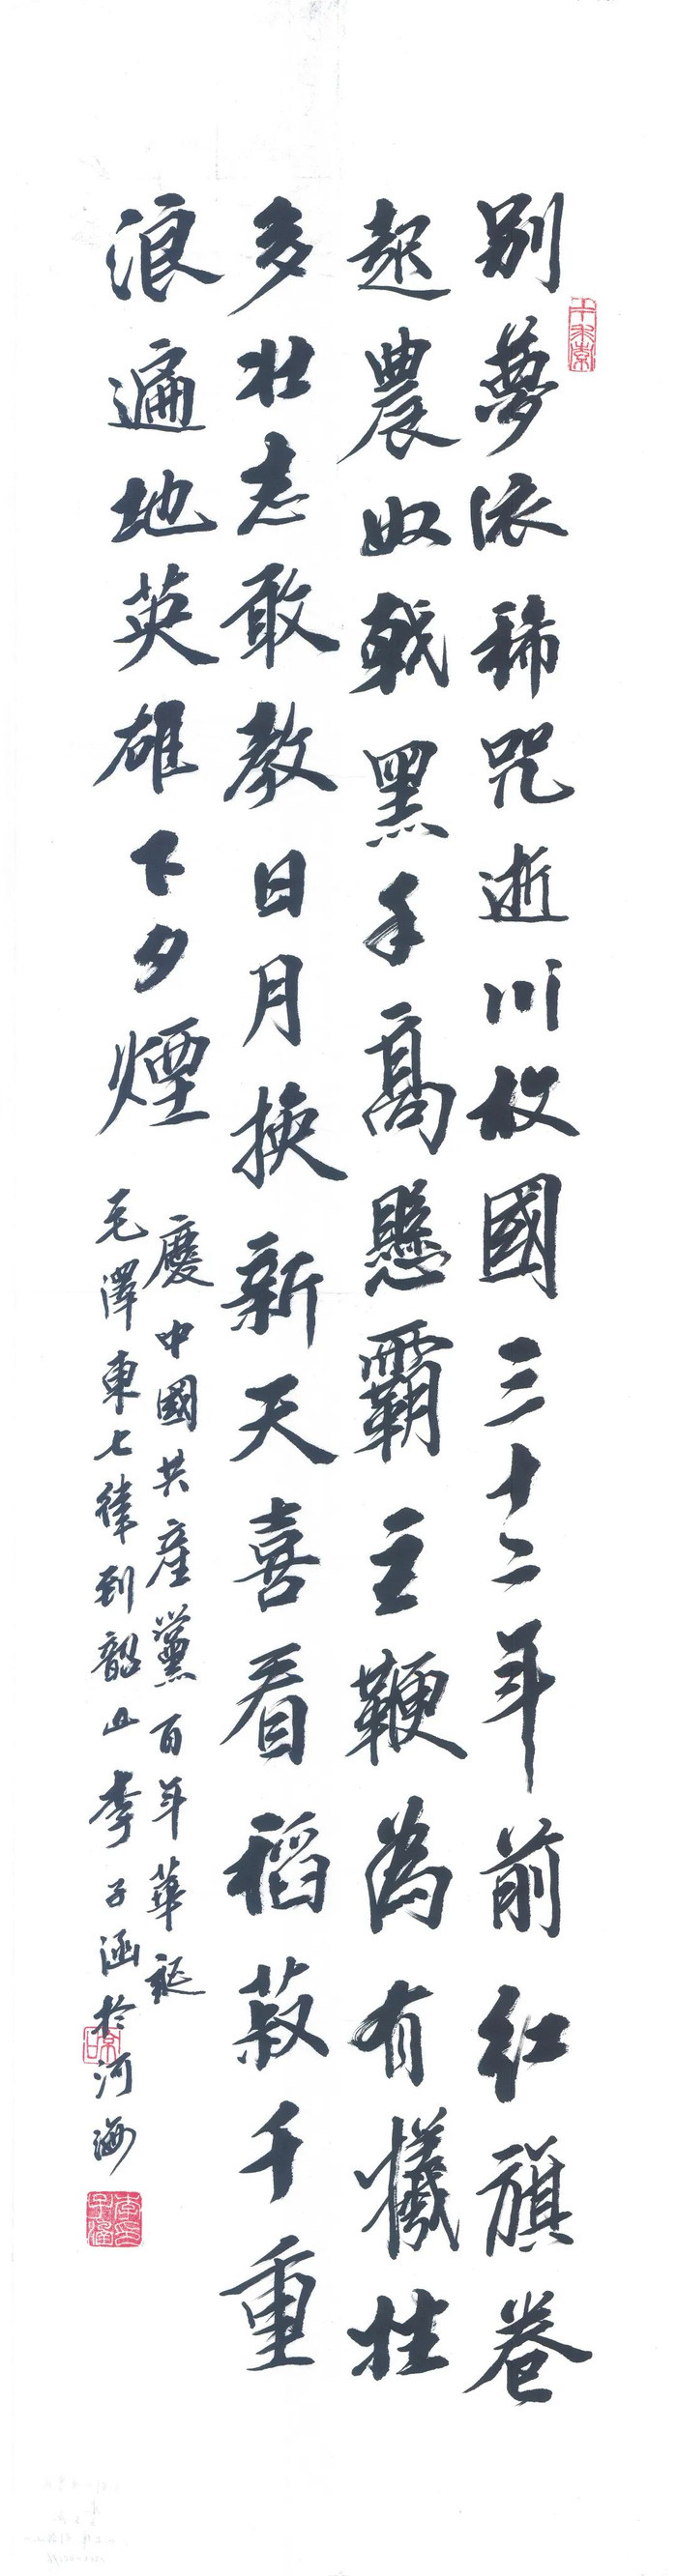 別夢依稀咒逝川故國三十二年前紅旗卷
起農奴戟黑手高懸霸主鞭為有犧牲
多壯志敢教日月換新天喜看稻菽千重
浪遍地英雄下夕煙
慶中國共產黨百年華誕
毛澤東七律到韶山李子涵於河海